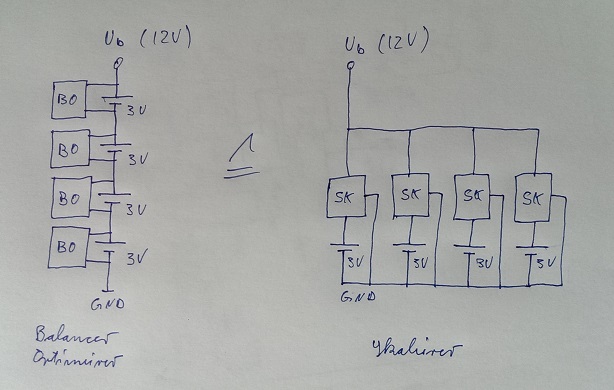 Ub (12V)
BO
3V
BO
3V
BO
3V
BO
3V
GND
Balancer
Optimierer
Ub (12V)
SK
SK
SK
SK
3V
3V
3V
3V
GND
Skalierer